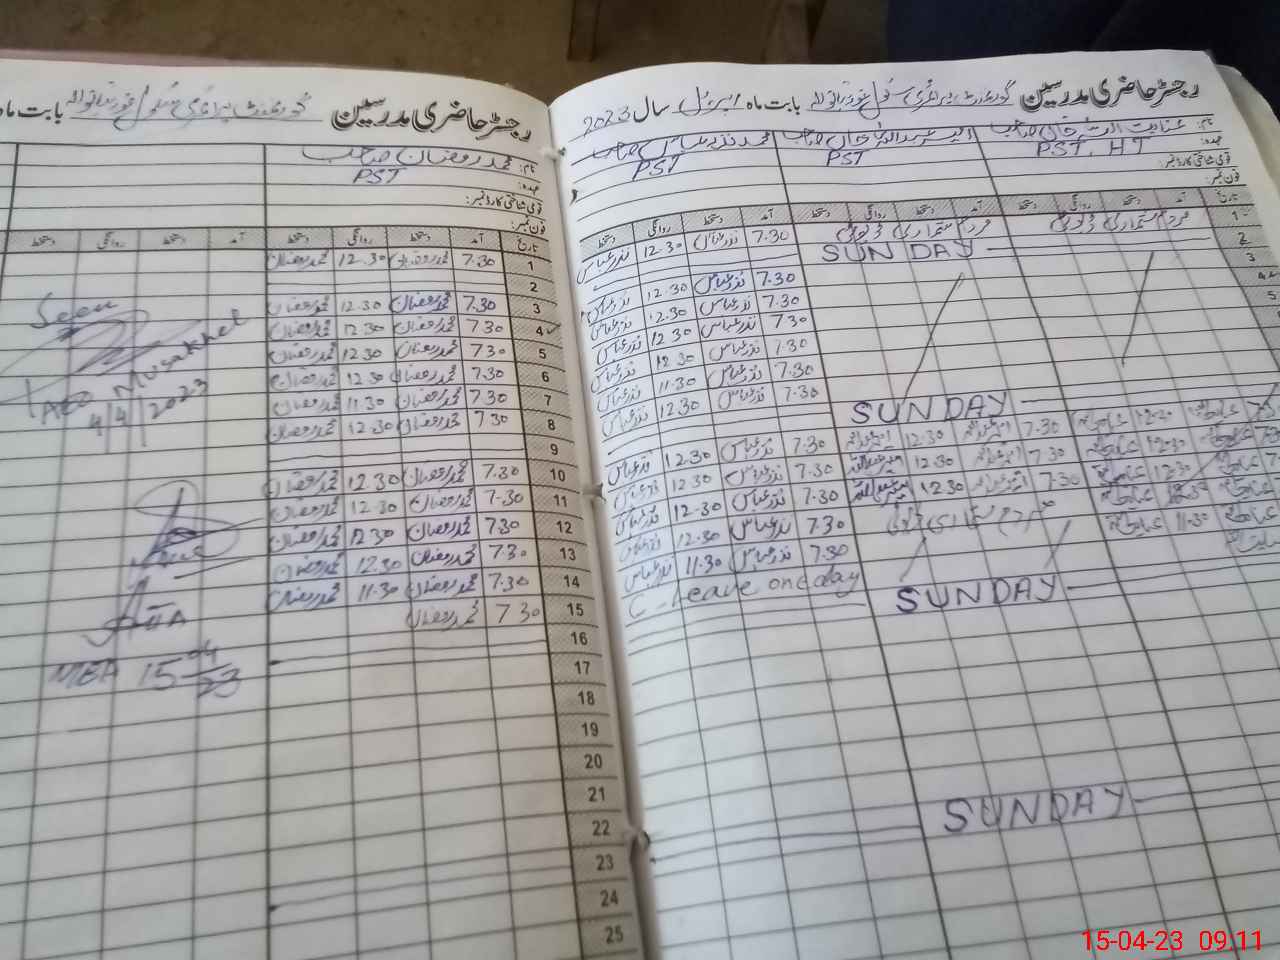 رجسٹر حاضری مدرسین گورنمنٹ پرائمری سکول بابت ماہ اپریل سال 2023
نام: عنایت اللہ خان صاحب
محمد نذر عباس صاحب
عہدہ: PST, HT PST PST
قومی شناختی کارڈ نمبر:
فون نمبر:
تاریخ آمد دستخط روانگی دستخط آمد دستخط روانگی دستخط آمد دستخط روانگی دستخط
1 مردم شماری ڈیوٹی مردم شماری ڈیوٹی 7.30 نذر عباس 12.30 نذر عباس
2 SUNDAY
3 7.30 نذر عباس 12.30 نذر عباس
4 7.30 نذر عباس 12.30 نذر عباس
5 7.30 نذر عباس 12.30 نذر عباس
7.30 نذر عباس 12.30 نذر عباس
7.30 نذر عباس 11.30 نذر عباس
7.30 نذر عباس 12.30 نذر عباس
SUNDAY
12.30 7.30 12.30 7.30 نذر عباس 12.30 نذر عباس
12.30 7.30 12.30 7.30 نذر عباس 12.30 نذر عباس
12.30 7.30 12.30 7.30 نذر عباس 12.30 نذر عباس
مردم شماری ڈیوٹی 7.30 نذر عباس 12.30 نذر عباس
11.30 7.30 نذر عباس 11.30 نذر عباس
C-Leave one day
SUNDAY
SUNDAY
رجسٹر حاضری مدرسین گورنمنٹ پرائمری سکول بابت ماہ
نام: محمد رمضان صاحب
عہدہ: PST
قومی شناختی کارڈ نمبر:
فون نمبر:
تاریخ آمد دستخط روانگی دستخط آمد دستخط روانگی دستخط
1 7.30 محمد رمضان 12.30 محمد رمضان
2
3 7.30 محمد رمضان 12.30 محمد رمضان
4 7.30 محمد رمضان 12.30 محمد رمضان
5 7.30 محمد رمضان 12.30 محمد رمضان
6 7.30 محمد رمضان 12.30 محمد رمضان
7 7.30 محمد رمضان 11.30 محمد رمضان
8 7.30 محمد رمضان 12.30 محمد رمضان
9
10 7.30 محمد رمضان 12.30 محمد رمضان
11 7.30 محمد رمضان 12.30 محمد رمضان
12 7.30 محمد رمضان 12.30 محمد رمضان
13 7.30 محمد رمضان 12.30 محمد رمضان
14 7.30 محمد رمضان 11.30 محمد رمضان
15 7.30 محمد رمضان
16
17
18
19
20
21
22
23
24
25
Seen
Musakhel
4/4/2023
MEA 15-04-23
15-04-23 09:11